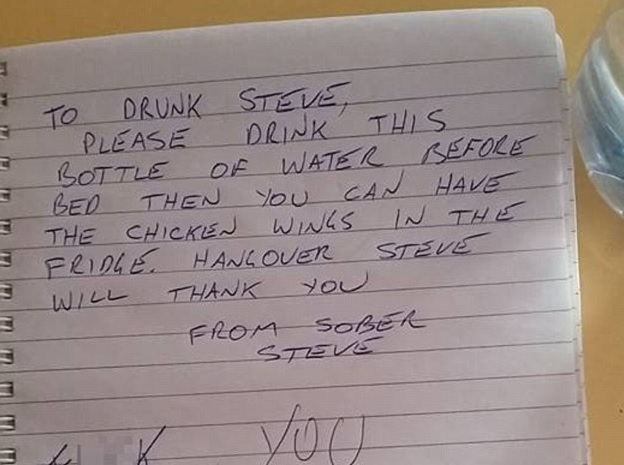 TO DRUNK STEVE,
PLEASE DRINK THIS
BOTTLE OF WATER BEFORE
BED THEN YOU CAN HAVE
THE CHICKEN WINGS IN THE
FRIDGE. HANGOVER STEVE
WILL THANK YOU
FROM SOBER
STEVE
YOU